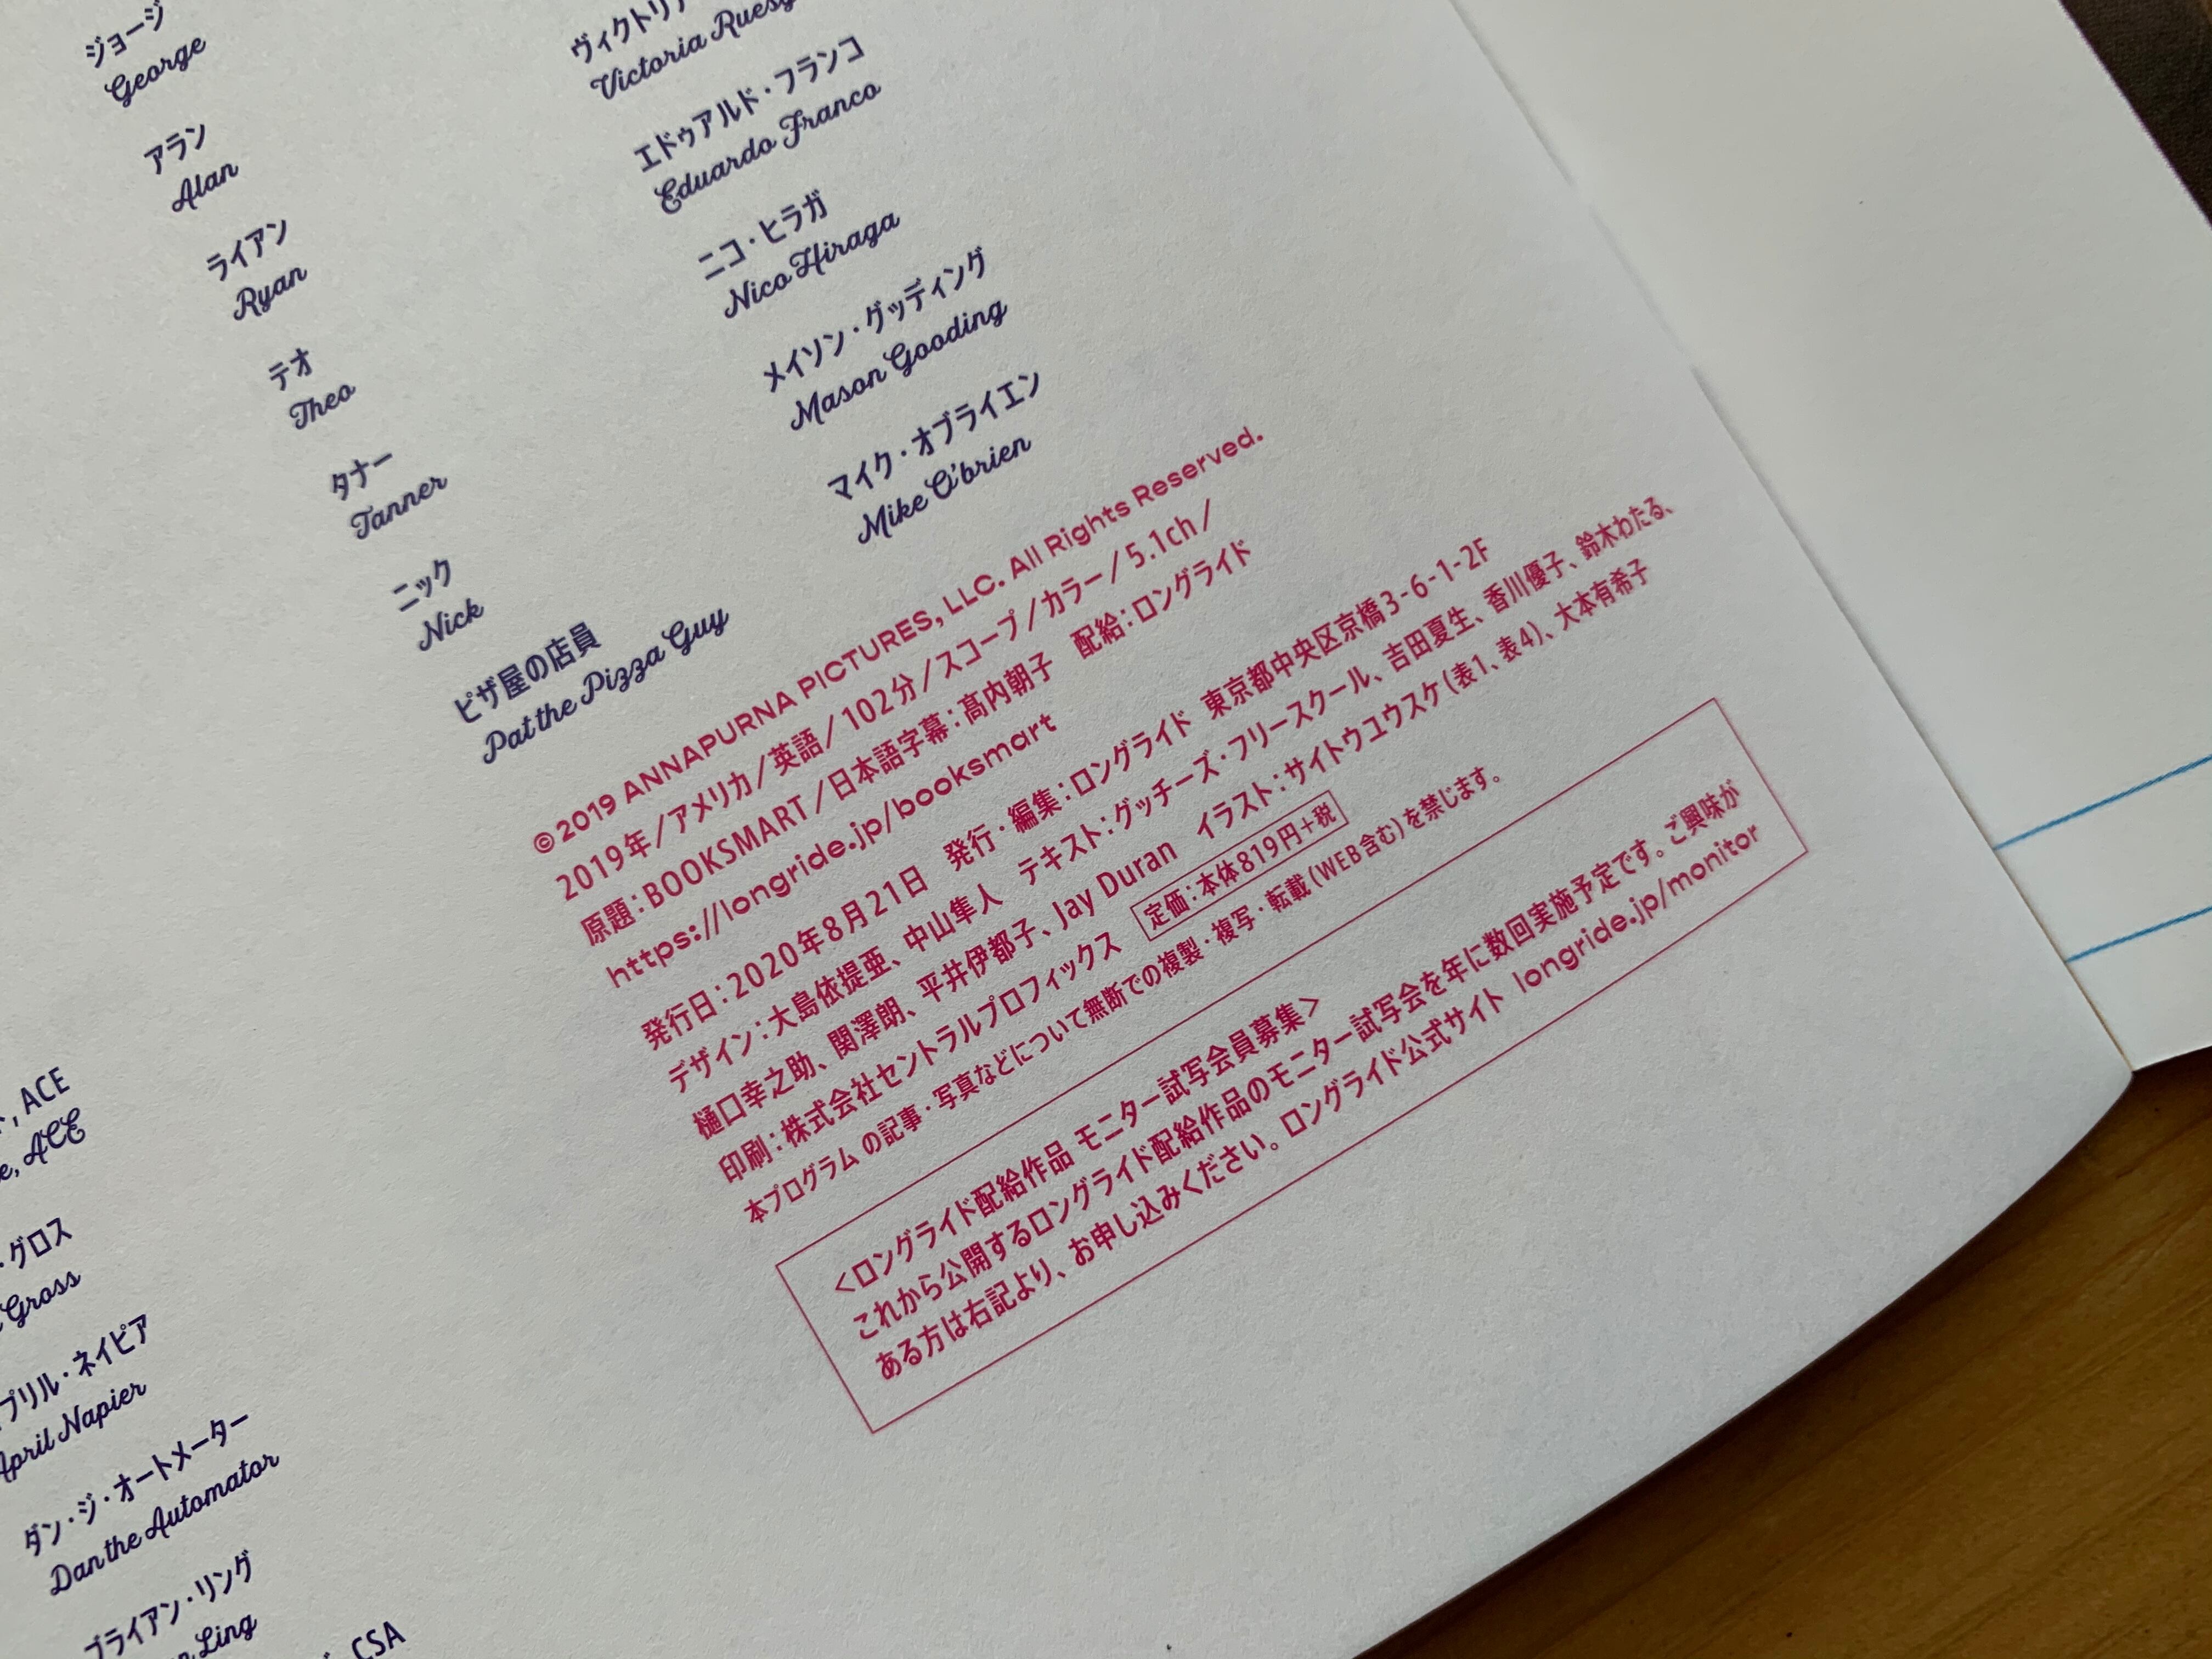 ジョージ
George
アラン
Alan
ライアン
Ryan
テオ
Theo
タナー
Tanner
ニック
Nick
ピザ屋の店員
Pat the Pizza Guy
Victoria
エドゥアルド・フランコ
Eduardo Franco
ニコ・ヒラガ
Nico Hiraga
メイソン・グッディング
Mason Gooding
マイク・オブライエン
Mike O'brien
©2019 ANNAPURNA PICTURES, LLC. All Rights Reserved.
2019年/アメリカ/英語/102分/スコープ/カラー/5.1ch/
原題：BOOKSMART/日本語字幕：髙内朝子　配給：ロングライド
https://longride.jp/booksmart
発行日：2020年8月21日　発行・編集：ロングライド　東京都中央区京橋3-6-1-2F
デザイン：大島依提亜、中山隼人　テキスト：グッチーズ・フリースクール、吉田夏生、香川優子、鈴木わたる、
樋口幸之助、関澤朗、平井伊都子、Jay Duran　イラスト：サイトウユウスケ（表1、表4）、大本有希子
印刷：株式会社セントラルプロフィックス　定価：本体819円＋税
本プログラムの記事・写真などについて無断での複製・複写・転載（WEB含む）を禁じます。
＜ロングライド配給作品 モニター試写会員募集＞
これから公開するロングライド配給作品のモニター試写会を年に数回実施予定です。ご興味が
ある方は右記より、お申し込みください。ロングライド公式サイト longride.jp/monitor
, ACE
, ACE
・グロス
Gross
プリル・ネイピア
April Napier
ダン・ジ・オートメーター
Dan the Automator
ブライアン・リング
Ling
CSA